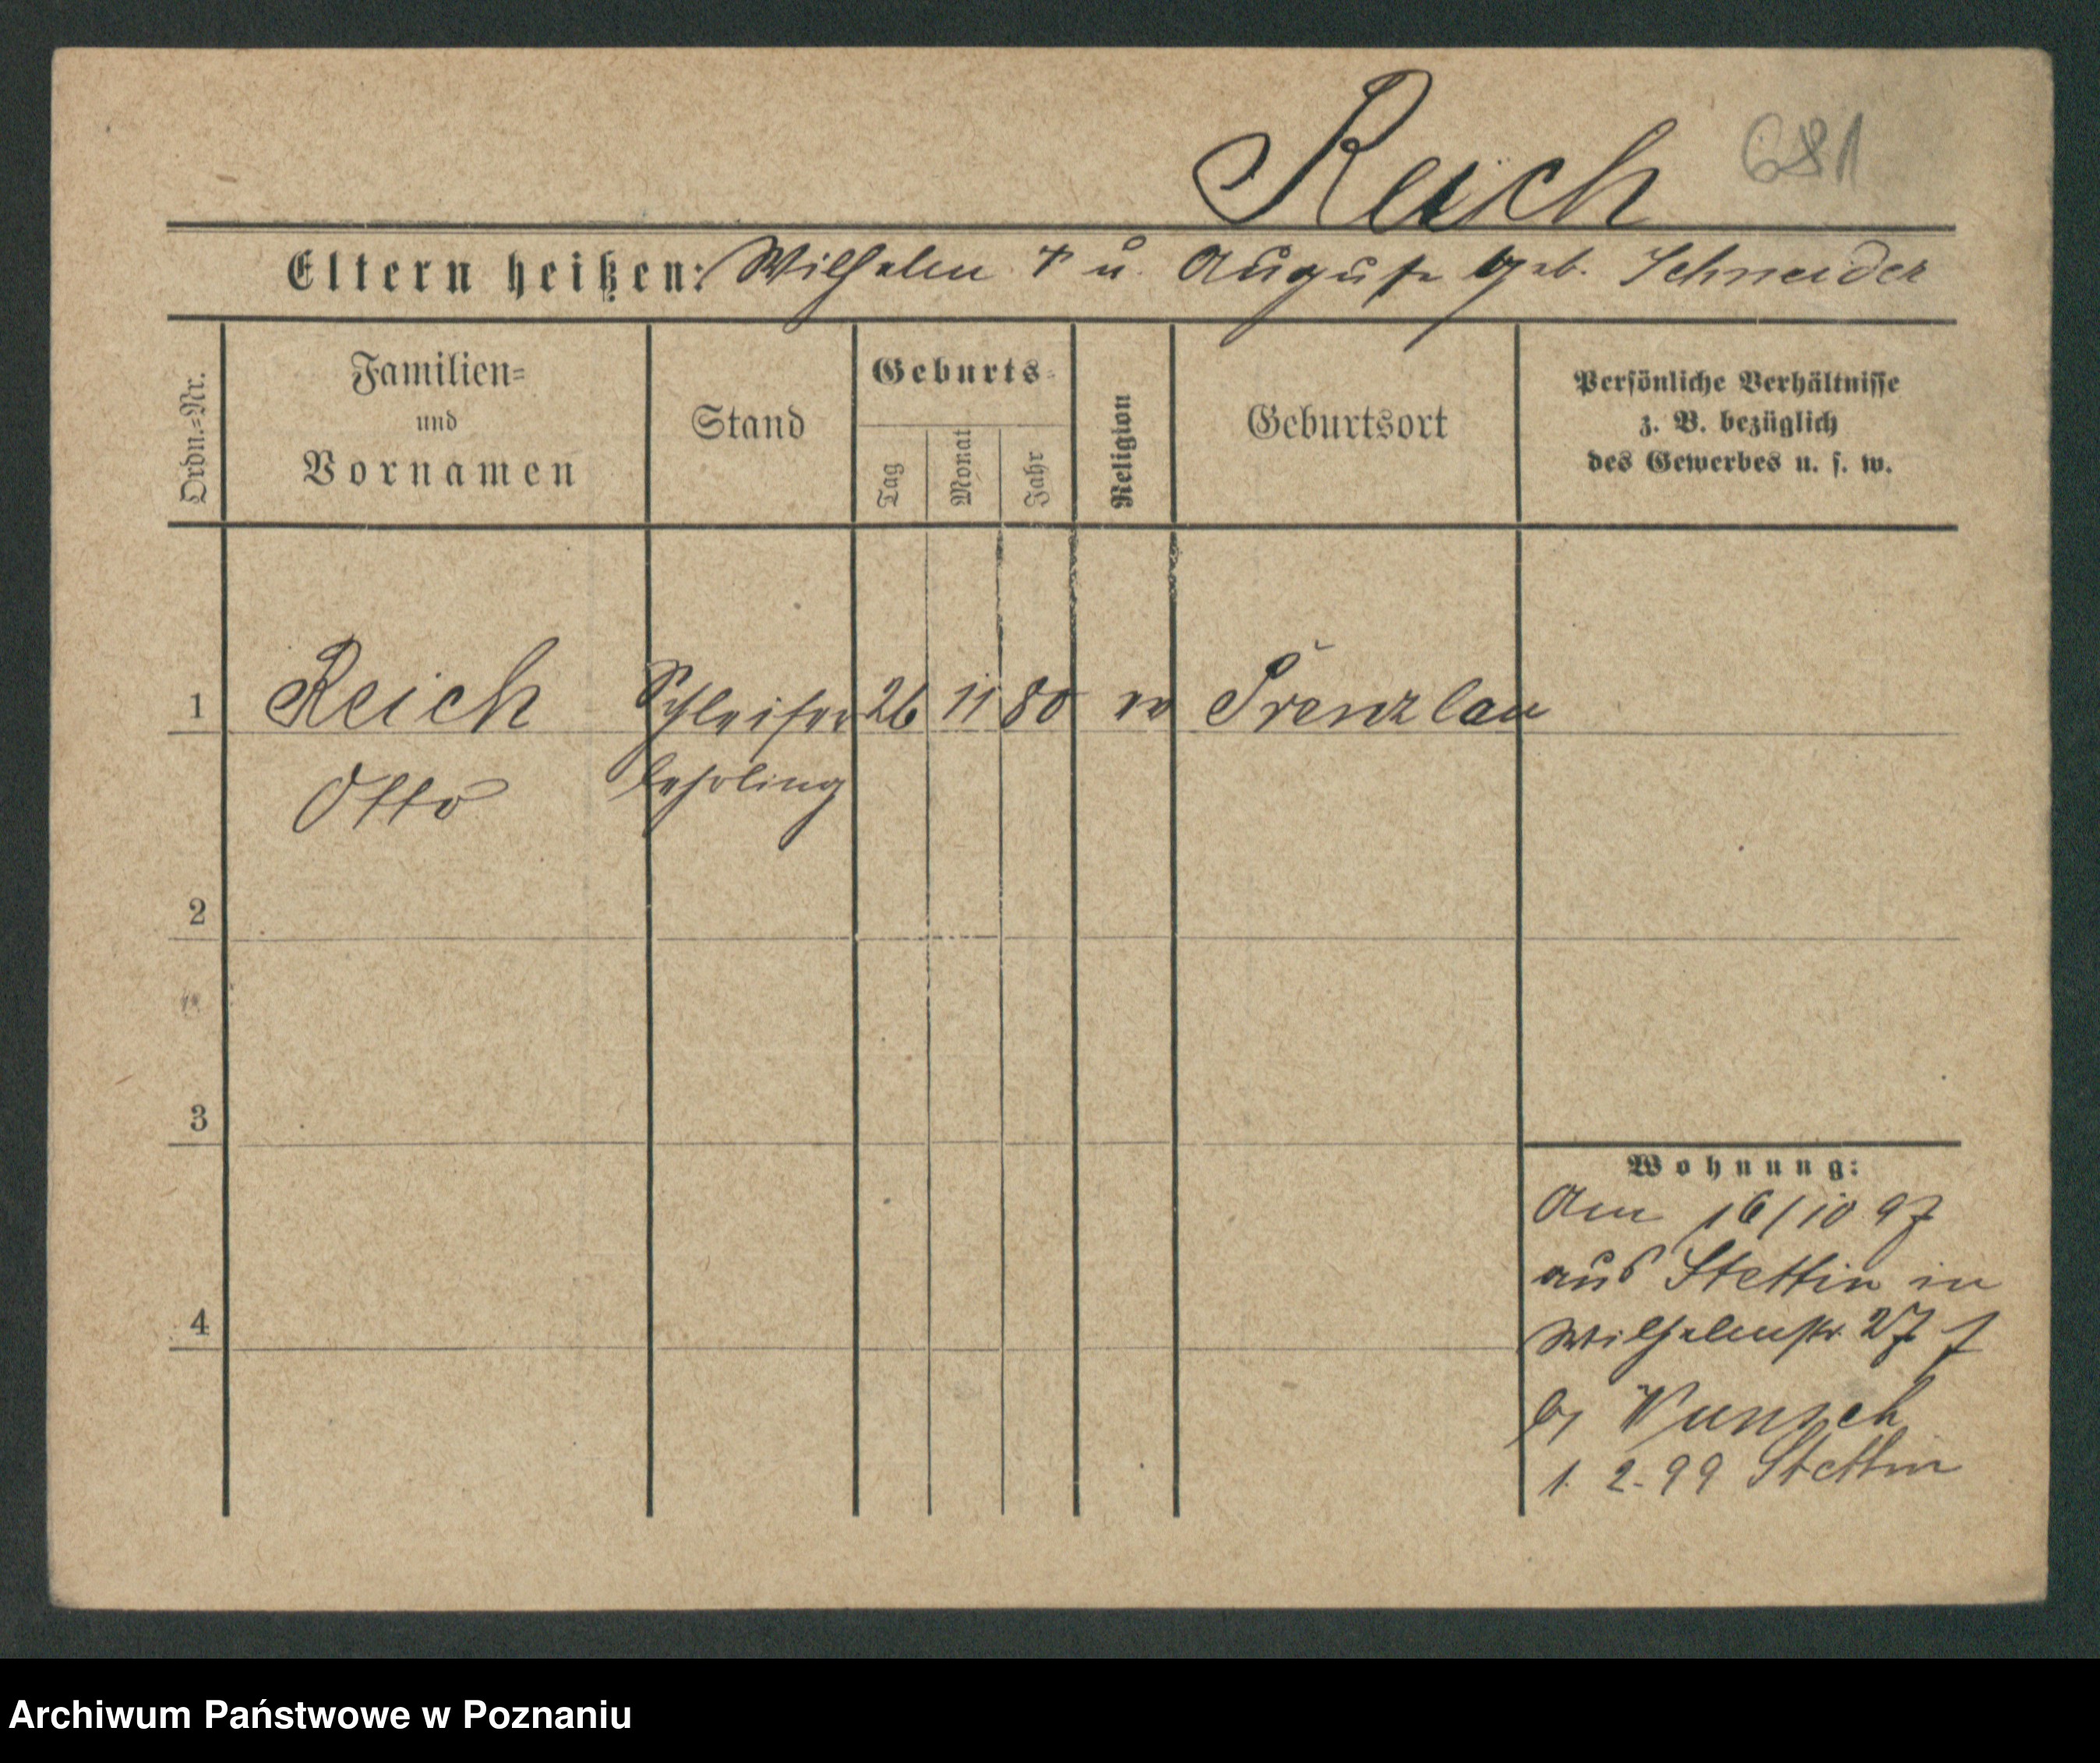 Reich 681
Eltern heißen: Wilhelm † u. Auguste geb. Schneider
Ordn.=Nr.
Familien=
und
Vornamen
Stand
Geburts=
Tag
Monat
Jahr
Religion
Geburtsort
Persönliche Verhältnisse
z. B. bezüglich
des Gewerbes u. s. w.
1 Reich Schleifer 26 11 80 ev Prenzlau
Otto lehrling
2
3
4
Wohnung:
Am 16/10 97
aus Stettin in
Wilhelmstr. 27 I
b/ Wunsch
1. 2. 99 Stettin
Archiwum Państwowe w Poznaniu